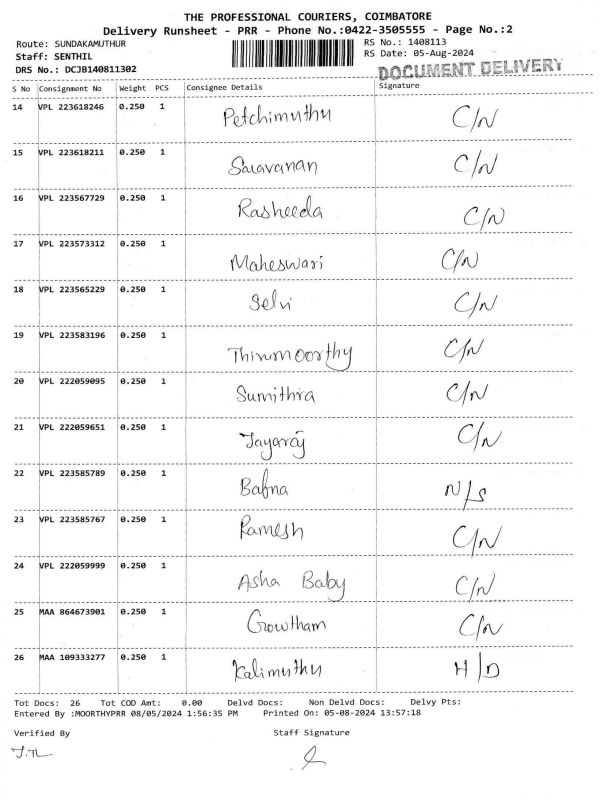 THE PROFESSIONAL COURIERS, COIMBATORE
Delivery Runsheet - PRR - Phone No.:0422-3505555 - Page No.:2
Route: SUNDAKAMUTHUR RS No.: 1408113
Staff: SENTHIL RS Date: 05-Aug-2024
DRS No.: DCJB140811302 DOCUMENT DELIVERY
S No Consignment No Weight PCS Consignee Details Signature
14 VPL 223618246 0.250 1 Petchimuthu C/N
15 VPL 223618211 0.250 1 Saravanan C/N
16 VPL 223567729 0.250 1 Rasheeda C/N
17 VPL 223573312 0.250 1 Maheswari C/N
18 VPL 223565229 0.250 1 Selvi C/N
19 VPL 223583196 0.250 1 Thirumoorthy C/N
20 VPL 222059095 0.250 1 Sumithra C/N
21 VPL 222059651 0.250 1 Jayaraj C/N
22 VPL 223585789 0.250 1 Babna N/S
23 VPL 223585767 0.250 1 Ramesh C/N
24 VPL 222059999 0.250 1 Asha Baby C/N
25 MAA 864673901 0.250 1 Gowtham C/N
26 MAA 109333277 0.250 1 Kalimuthu H/D
Tot Docs: 26 Tot COD Amt: 0.00 Delvd Docs: Non Delvd Docs: Delvy Pts:
Entered By :MOORTHYPRR 08/05/2024 1:56:35 PM Printed On: 05-08-2024 13:57:18
Verified By Staff Signature